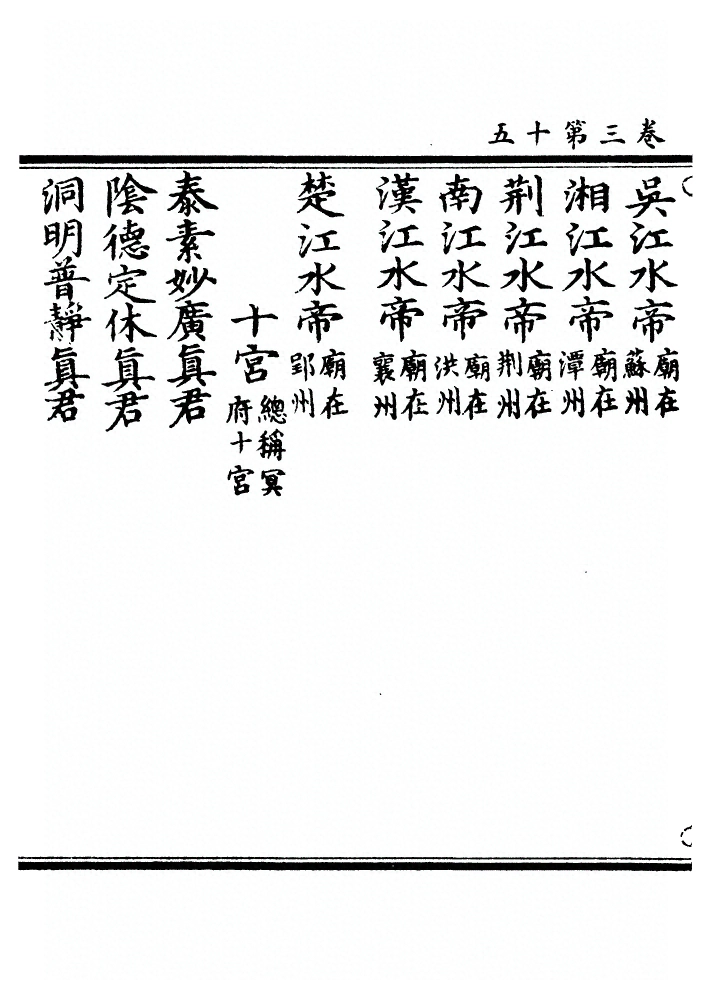 卷三第十五
吳江水帝廟在蘇州
湘江水帝廟在潭州
荆江水帝廟在荆州
南江水帝廟在洪州
漢江水帝廟在襄州
楚江水帝廟在郢州
十宮總稱冥府十宮
泰素妙廣真君
陰德定休真君
洞明普靜真君